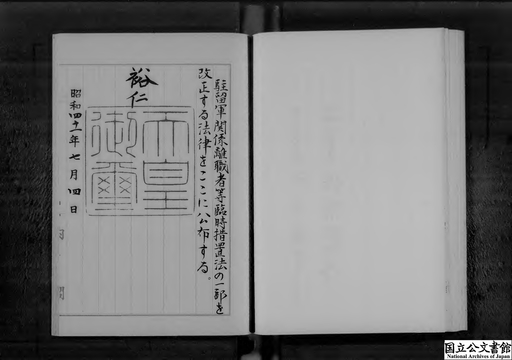 駐留軍関係離職者等臨時措置法の一部を
改正する法律をここに公布する。
裕仁
天皇
御璽
昭和四十一年七月四日
国立公文書館
National Archives of Japan